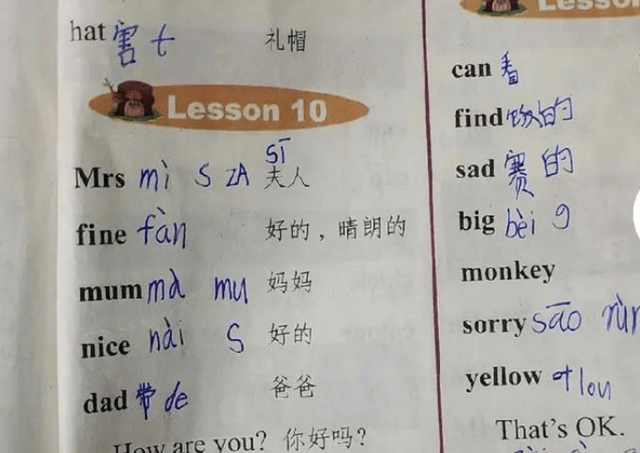 hat 害 t 礼帽
Lesson 10
sī
Mrs mì s zA 夫人
fine fàn 好的，晴朗的
mum mà mu 妈妈
nice nài s 好的
dad 带 de 爸爸
How are you? 你好吗?
Lesson
can 看
find 饭的
sad 赛的
big bèi g
monkey
sorry sāo rùn
yellow lou
That's OK.